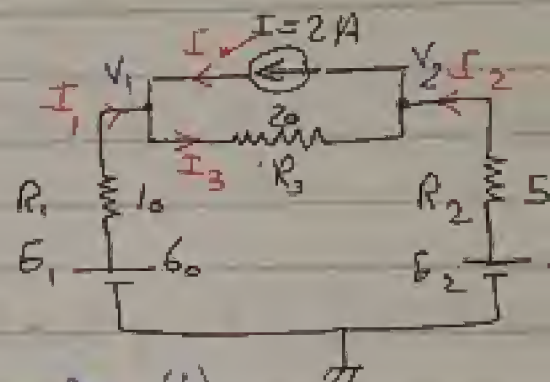 I I=2A
V₁ V₂ I₂
I₁
20
I₃ R₃
R₁ 10 R₂ 5
60